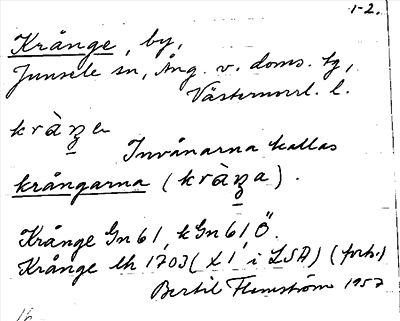 1-2.
Krånge, by,
Junsele sn, Ång. v. doms. tg,
Västernorrl. l.
kràŋ̠e
Invånarna kallas
krångarna (kràŋ̠a).
Krånge Gn 61, k Gn 61 Ö.
Krånge lh 1703 (X1 i LSA) (forts.)
Bertil Flemström 1957
16